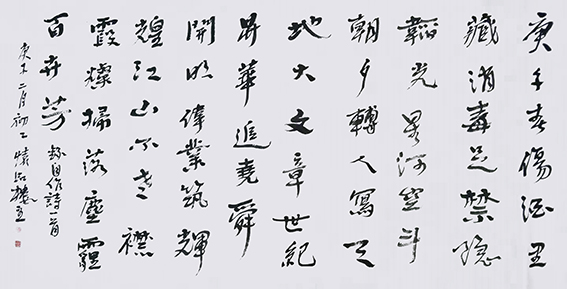 庚子春傷酒里
藏消毒足禁隐
韜光星河空斗
朝夕轉人寫天
地大文章世紀
昇華追堯舜
開明偉業筑輝
煌江山不老襟
霞燦掃落塵霾
百卉芳 自作詩一首
庚子二月初二